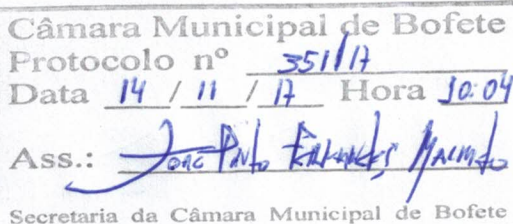 Câmara Municipal de Bofete
Protocolo nº 351/17
Data 14 / 11 / 17 Hora 10:04
Ass.: Machado
Secretaria da Câmara Municipal de Bofete